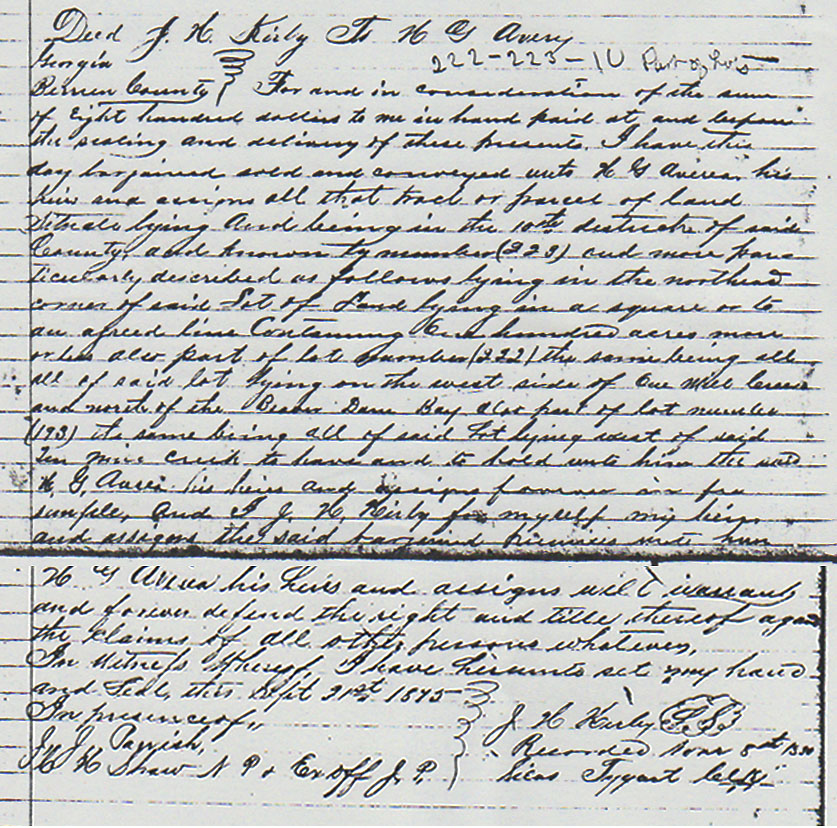 Deed J. H. Kirby To H G Avery
222-223-10 Part of Lots
Georgia
Berrien County } For and in consideration of the sum
of Eight hundred dollars to me in hand paid at and before
the sealing and delivery of these presents, I have this
day bargained sold and conveyed unto H G Averea his
heirs and assigns all that tract or parcel of land
situate lying and being in the 10th of said
County, and known by number (223) and more par
ticularly described as follows lying in the
corner of said Lot of Land lying in a square or to
an agreed line Containing hundred acres more
or less also part of lot number (222) the same being all
all of said lot lying on the west side of Mill Creek
and north of the Beaver Dam Bay also part of lot number
(193) the same being all of said Lot lying west of said
Creek to have and to hold unto him the said
H. G. Averea his heirs and assigns forever in fee
simple, and I J. H. Kirby for myself my heirs
and assigns the said bargained unto him
H G Averea his heirs and assigns will warrant
and forever defend the right and title thereof
the claims of all other persons whatever.
In Witness Whereof, I have hereunto set my hand
and Seal, this Sept 21st 1875
In presence of,,
J. J. Parrish,
H Shaw N P & Ex off J. P.
J H Kirby L.S.
Recorded 8th
Tygart Clk